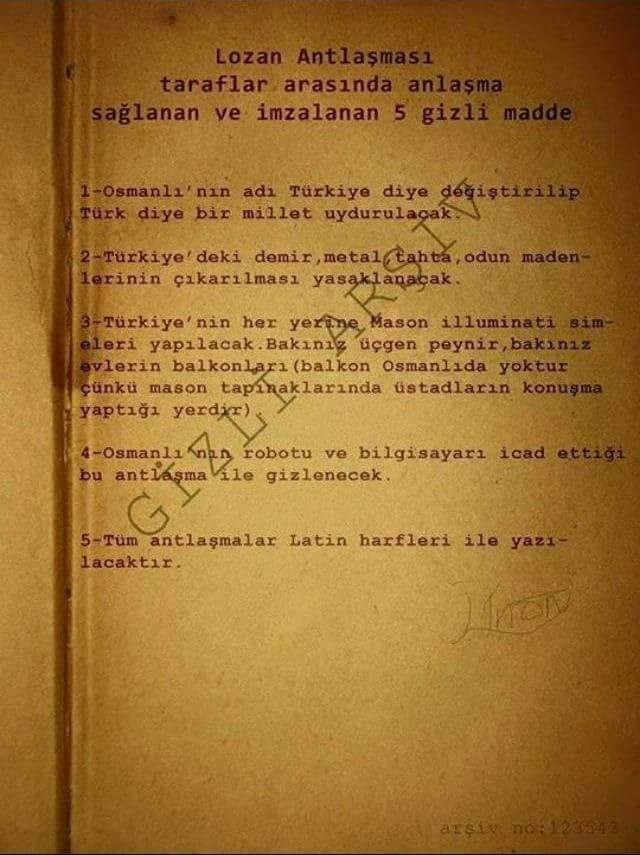 Lozan Antlaşması
taraflar arasında anlaşma
sağlanan ve imzalanan 5 gizli madde
1-Osmanlı'nın adı Türkiye diye değiştirilip
Türk diye bir millet uydurulaçak.
2-Türkiye'deki demir,metal,tahta,odun maden-
lerinin çıkarılması yasaklanaçak.
3-Türkiye'nin her yerine Mason illuminati sim-
eleri yapılacak.Bakınız üçgen peynir,bakınız
evlerin balkonları(balkon Osmanlıda yoktur
çünkü mason tapınaklarında üstadların konuşma
yaptığı yerdir).
4-Osmanlı'nın robotu ve bilgisayarı icad ettiği
bu antlaşma ile gizlenecek.
5-Tüm antlaşmalar Latin harfleri ile yazı-
lacaktır.
GİZLİ ARŞİV
arşiv no:123543